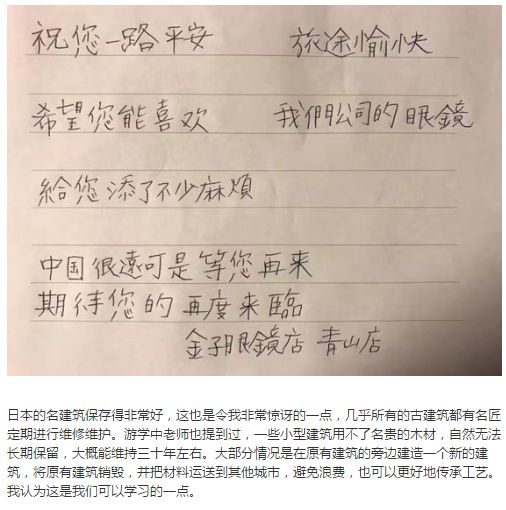 祝您一路平安 旅途愉快
希望您能喜欢 我們公司的眼鏡
給您添了不少麻煩
中国很遠可是等您再来
期待您的再度来臨
金子眼鏡店 青山店
日本的名建筑保存得非常好，这也是令我非常惊讶的一点，几乎所有的古建筑都有名匠
定期进行维修维护。游学中老师也提到过，一些小型建筑用不了名贵的木材，自然无法
长期保留，大概能维持三十年左右。大部分情况是在原有建筑的旁边建造一个新的建
筑，将原有建筑销毁，并把材料运送到其他城市，避免浪费，也可以更好地传承工艺。
我认为这是我们可以学习的一点。